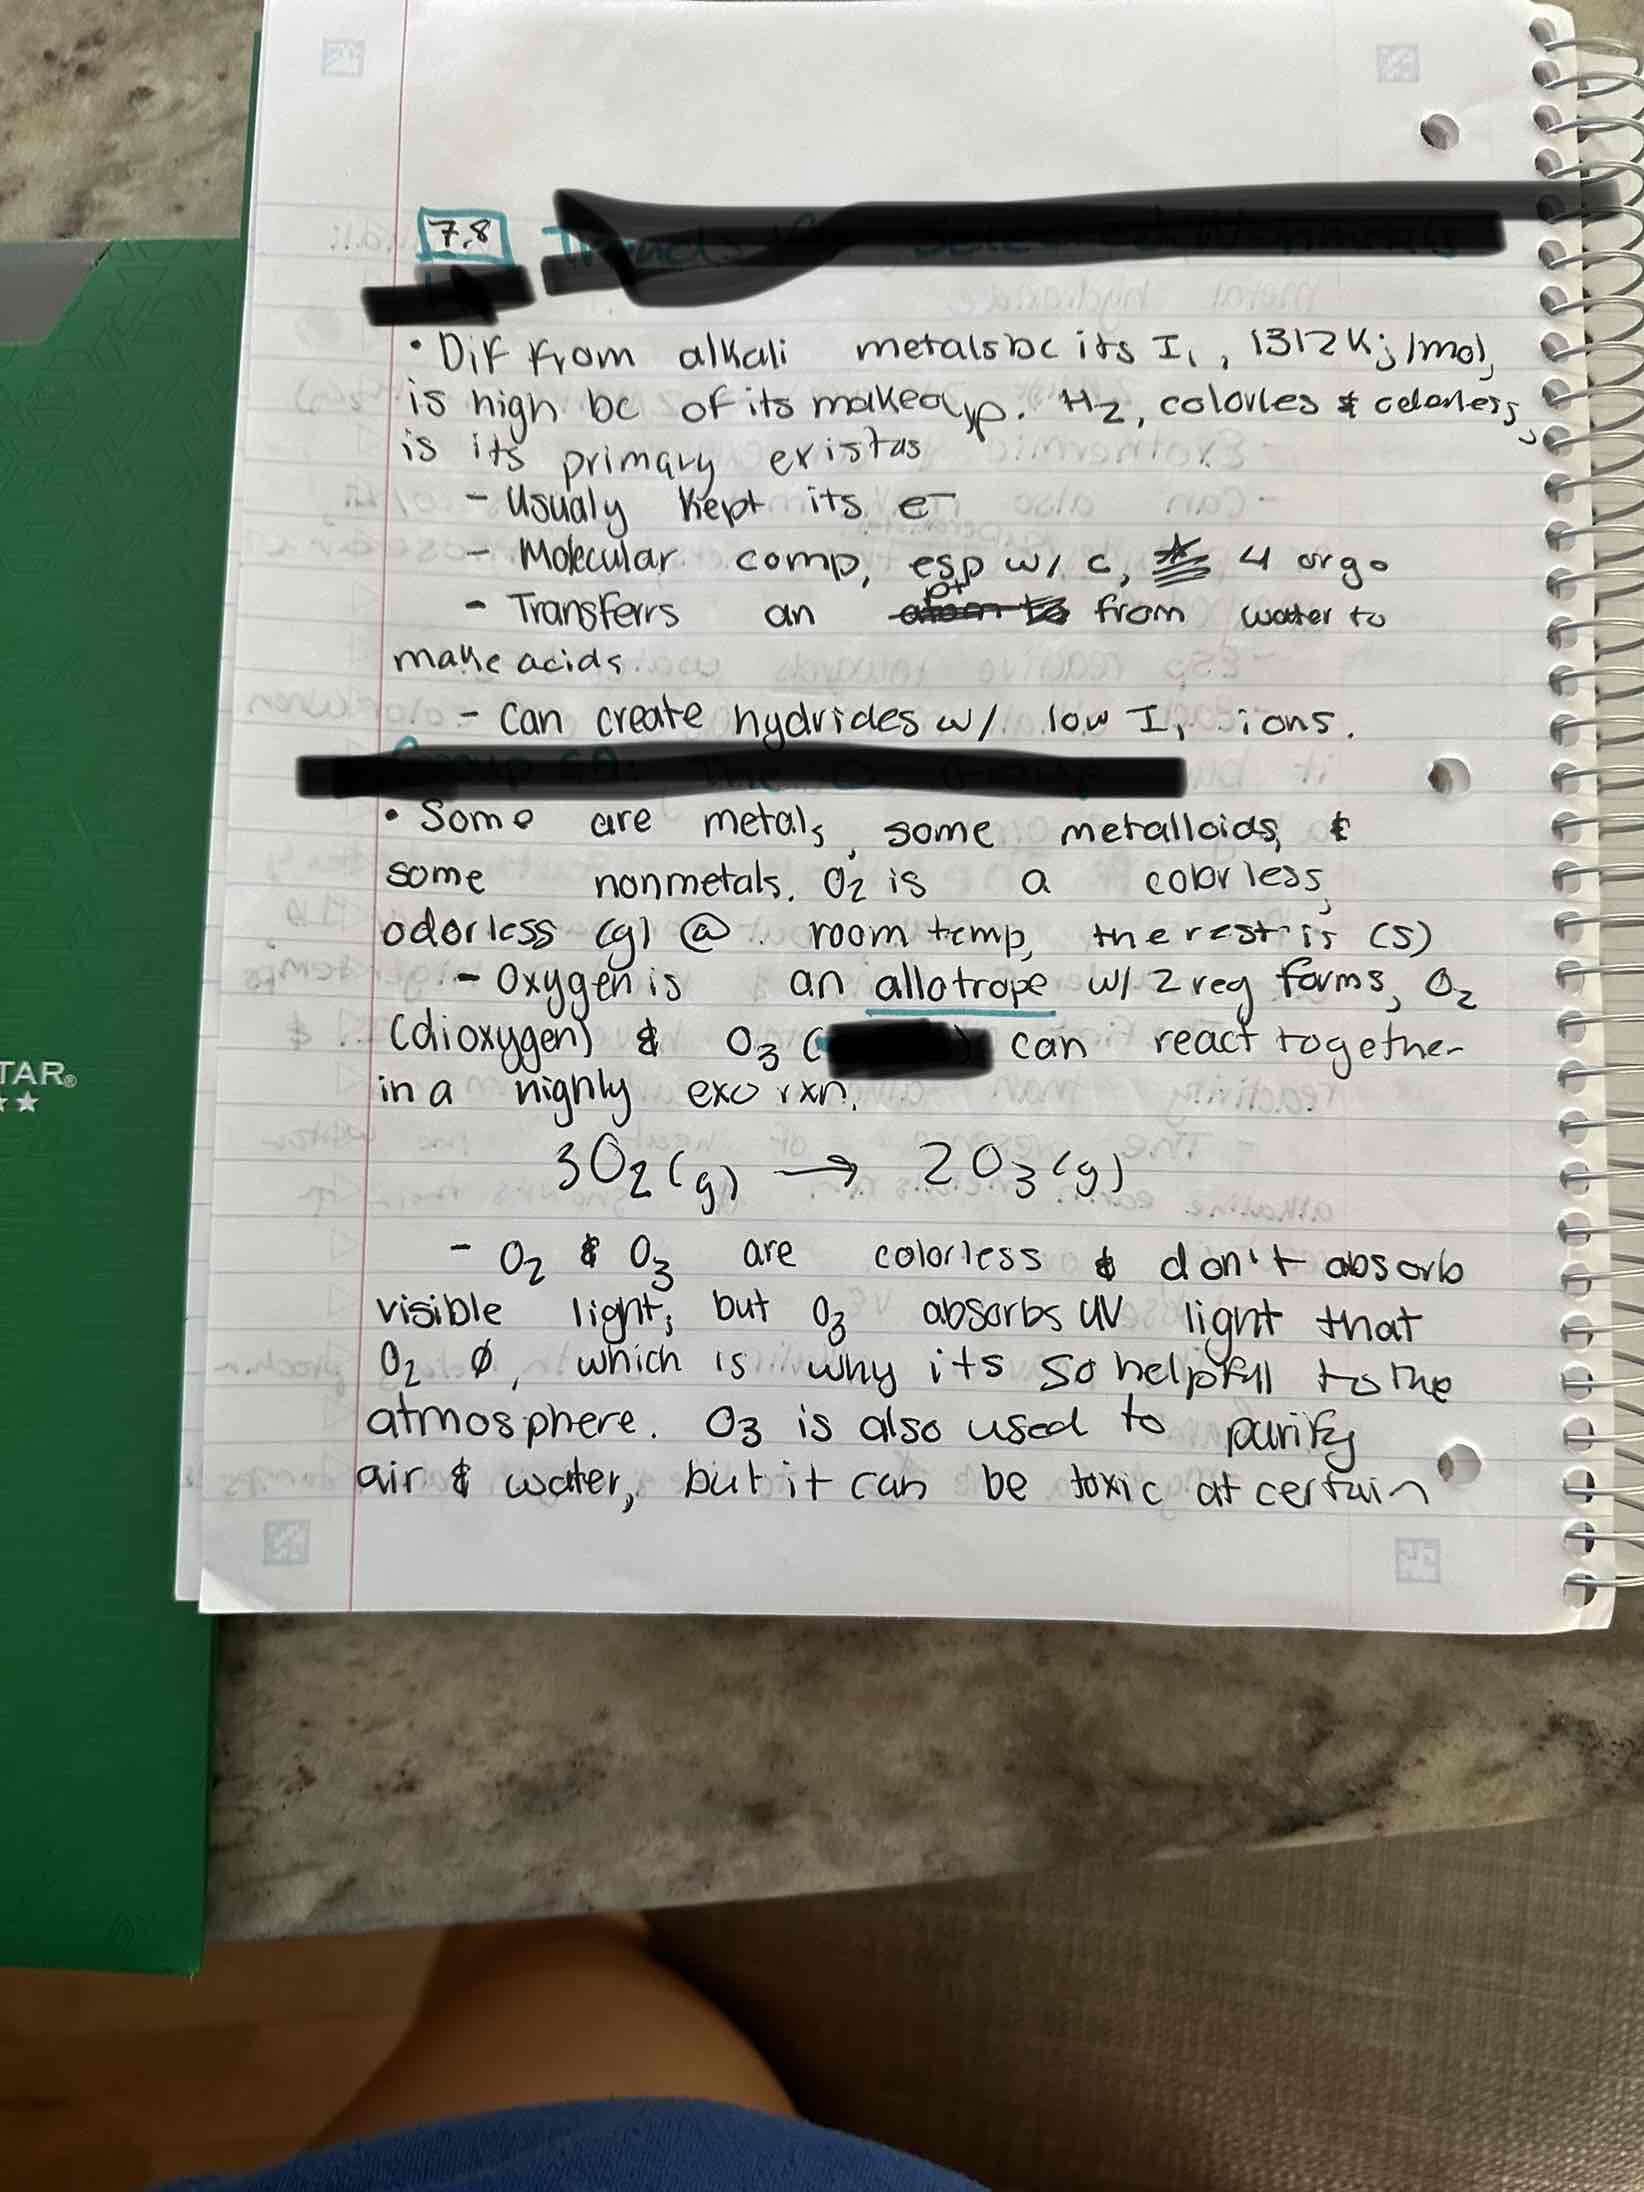 7.8
• Dif from alkali metals bc its I₁, 1312 Kj/mol,
is high bc of its makeup. H₂, colorles & odorless,
is its primary exist as
- Usualy kept its e⁻
- Molecular comp, esp w/ c, 4 orgo
p+
- Transferrs an from water to
make acids
- Can create hydrides w/ low I₁ ions.
• Some are metals, some metalloids, &
some nonmetals. O₂ is a colorless,
odorless (g) @ room temp, the rest is (s)
- Oxygen is an allotrope w/ 2 reg forms, O₂
(dioxygen) & O₃ ( ) can react together
in a highly exo rxn.
3O₂(g) → 2O₃(g)
- O₂ & O₃ are colorless & don't absorb
visible light, but O₃ absorbs UV light that
O₂ Ø, which is why its so helpfull to the
atmosphere. O₃ is also used to purify
air & water, but it can be toxic at certain
TAR®